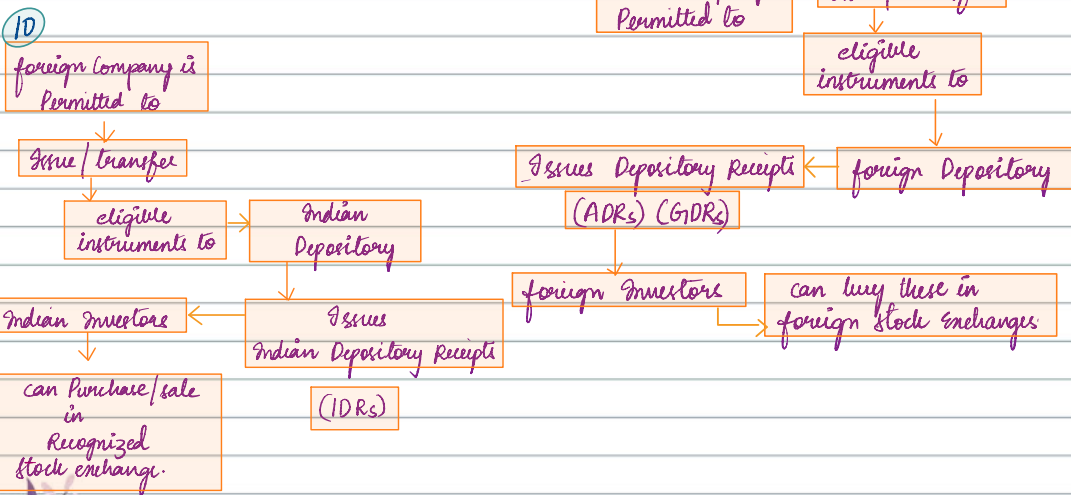 10
foreign Company is
Permitted to
Issue / transfer
eligible
instruments to
Indian
Depository
Issues
Indian Depository Receipts
(IDRs)
Indian Investors
can Purchase/sale
in
Recognized
Stock exchange.
Permitted to
eligible
instruments to
foreign Depository
Issues Depository Receipts
(ADRs) (GDRs)
foreign Investors
can buy these in
foreign Stock Exchanges.